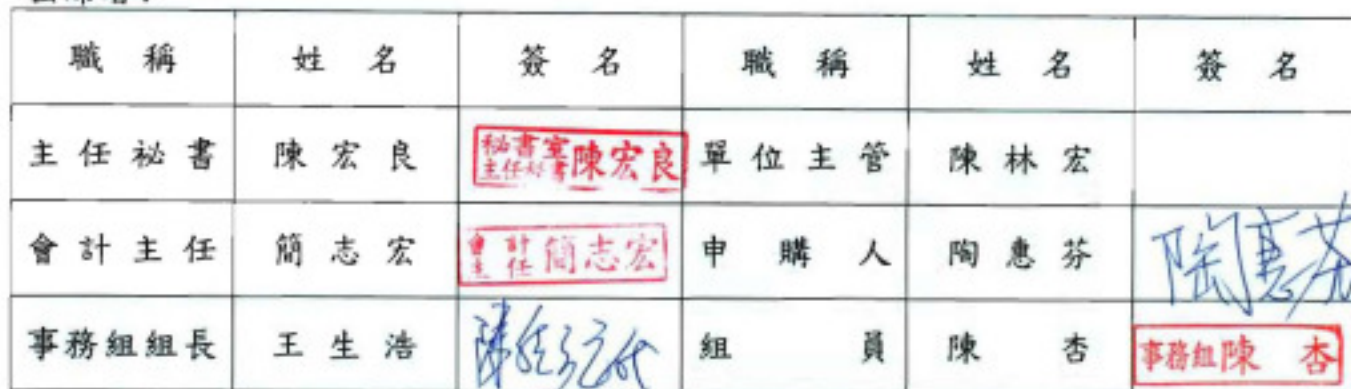 職稱 姓名 簽名 職稱 姓名 簽名
主任祕書 陳宏良 秘書室主任秘書陳宏良 單位主管 陳林宏
會計主任 簡志宏 會計主任簡志宏 申購人 陶惠芬 陶惠芬
事務組組長 王生浩 組員 陳杏 事務組陳杏